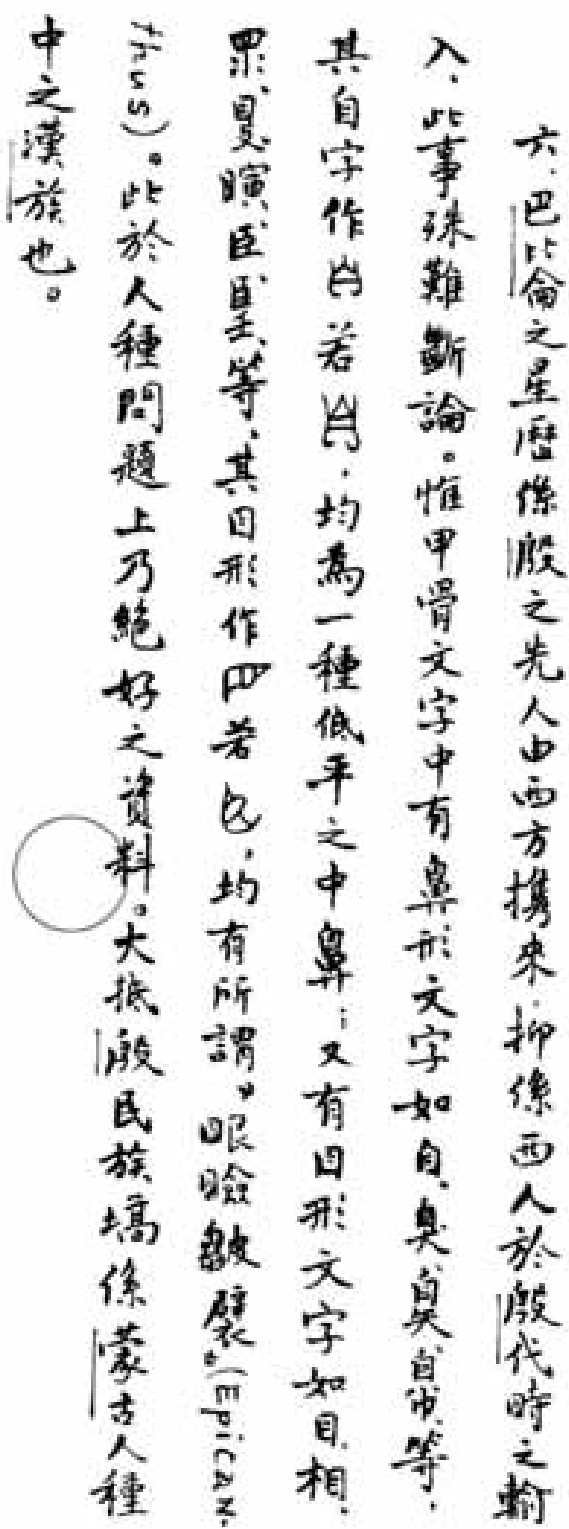 六、巴比倫之星曆係殷之先人由西方攜來、抑係西人於殷代時之輸
入、此事殊難斷論。惟甲骨文字中有鼻形文字如自、臭、等、
其自字作若、均為一種低平之中鼻；又有目形文字如目、相、
眔、䀠、臣、等、其目形作若、均有所謂“眼瞼皺襞”(Epican-
thus)。此於人種問題上乃絕好之資料。大抵殷民族塙係蒙古人種
中之漢族也。